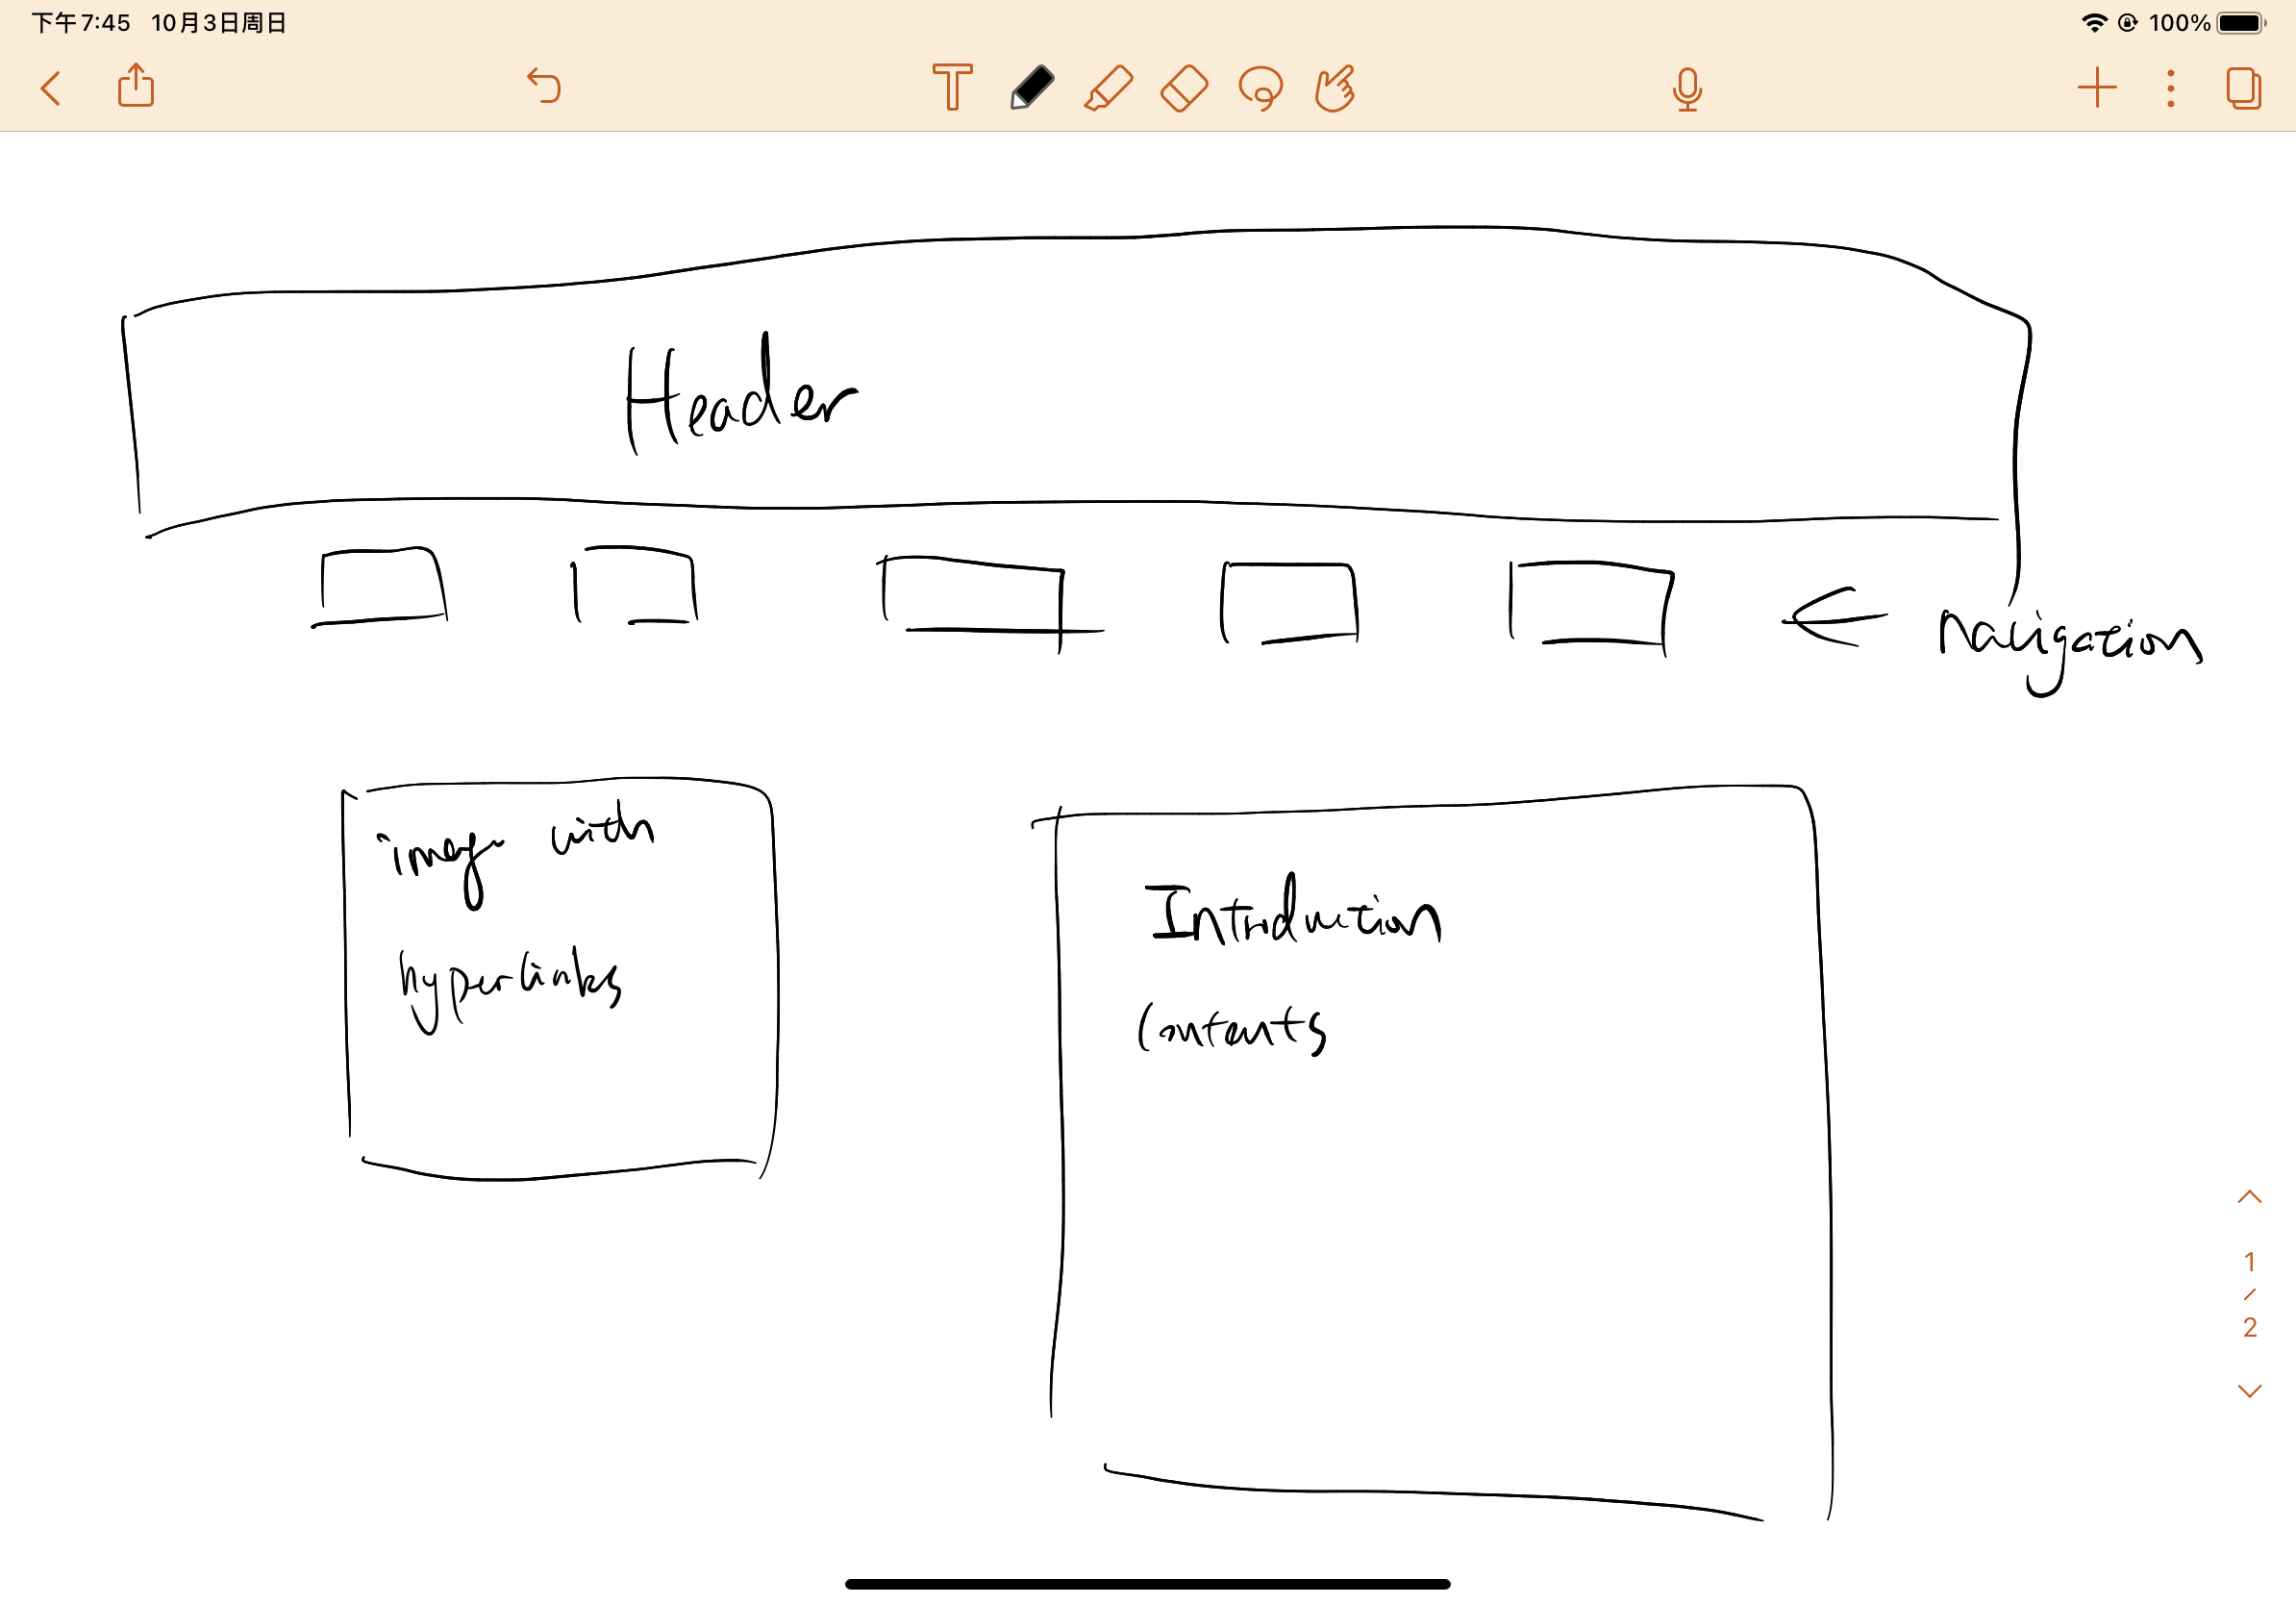 下午7:45 10月3日周日 100%
Header
Navigation
image with
hyperlinks
Introduction
Contents
1
/
2